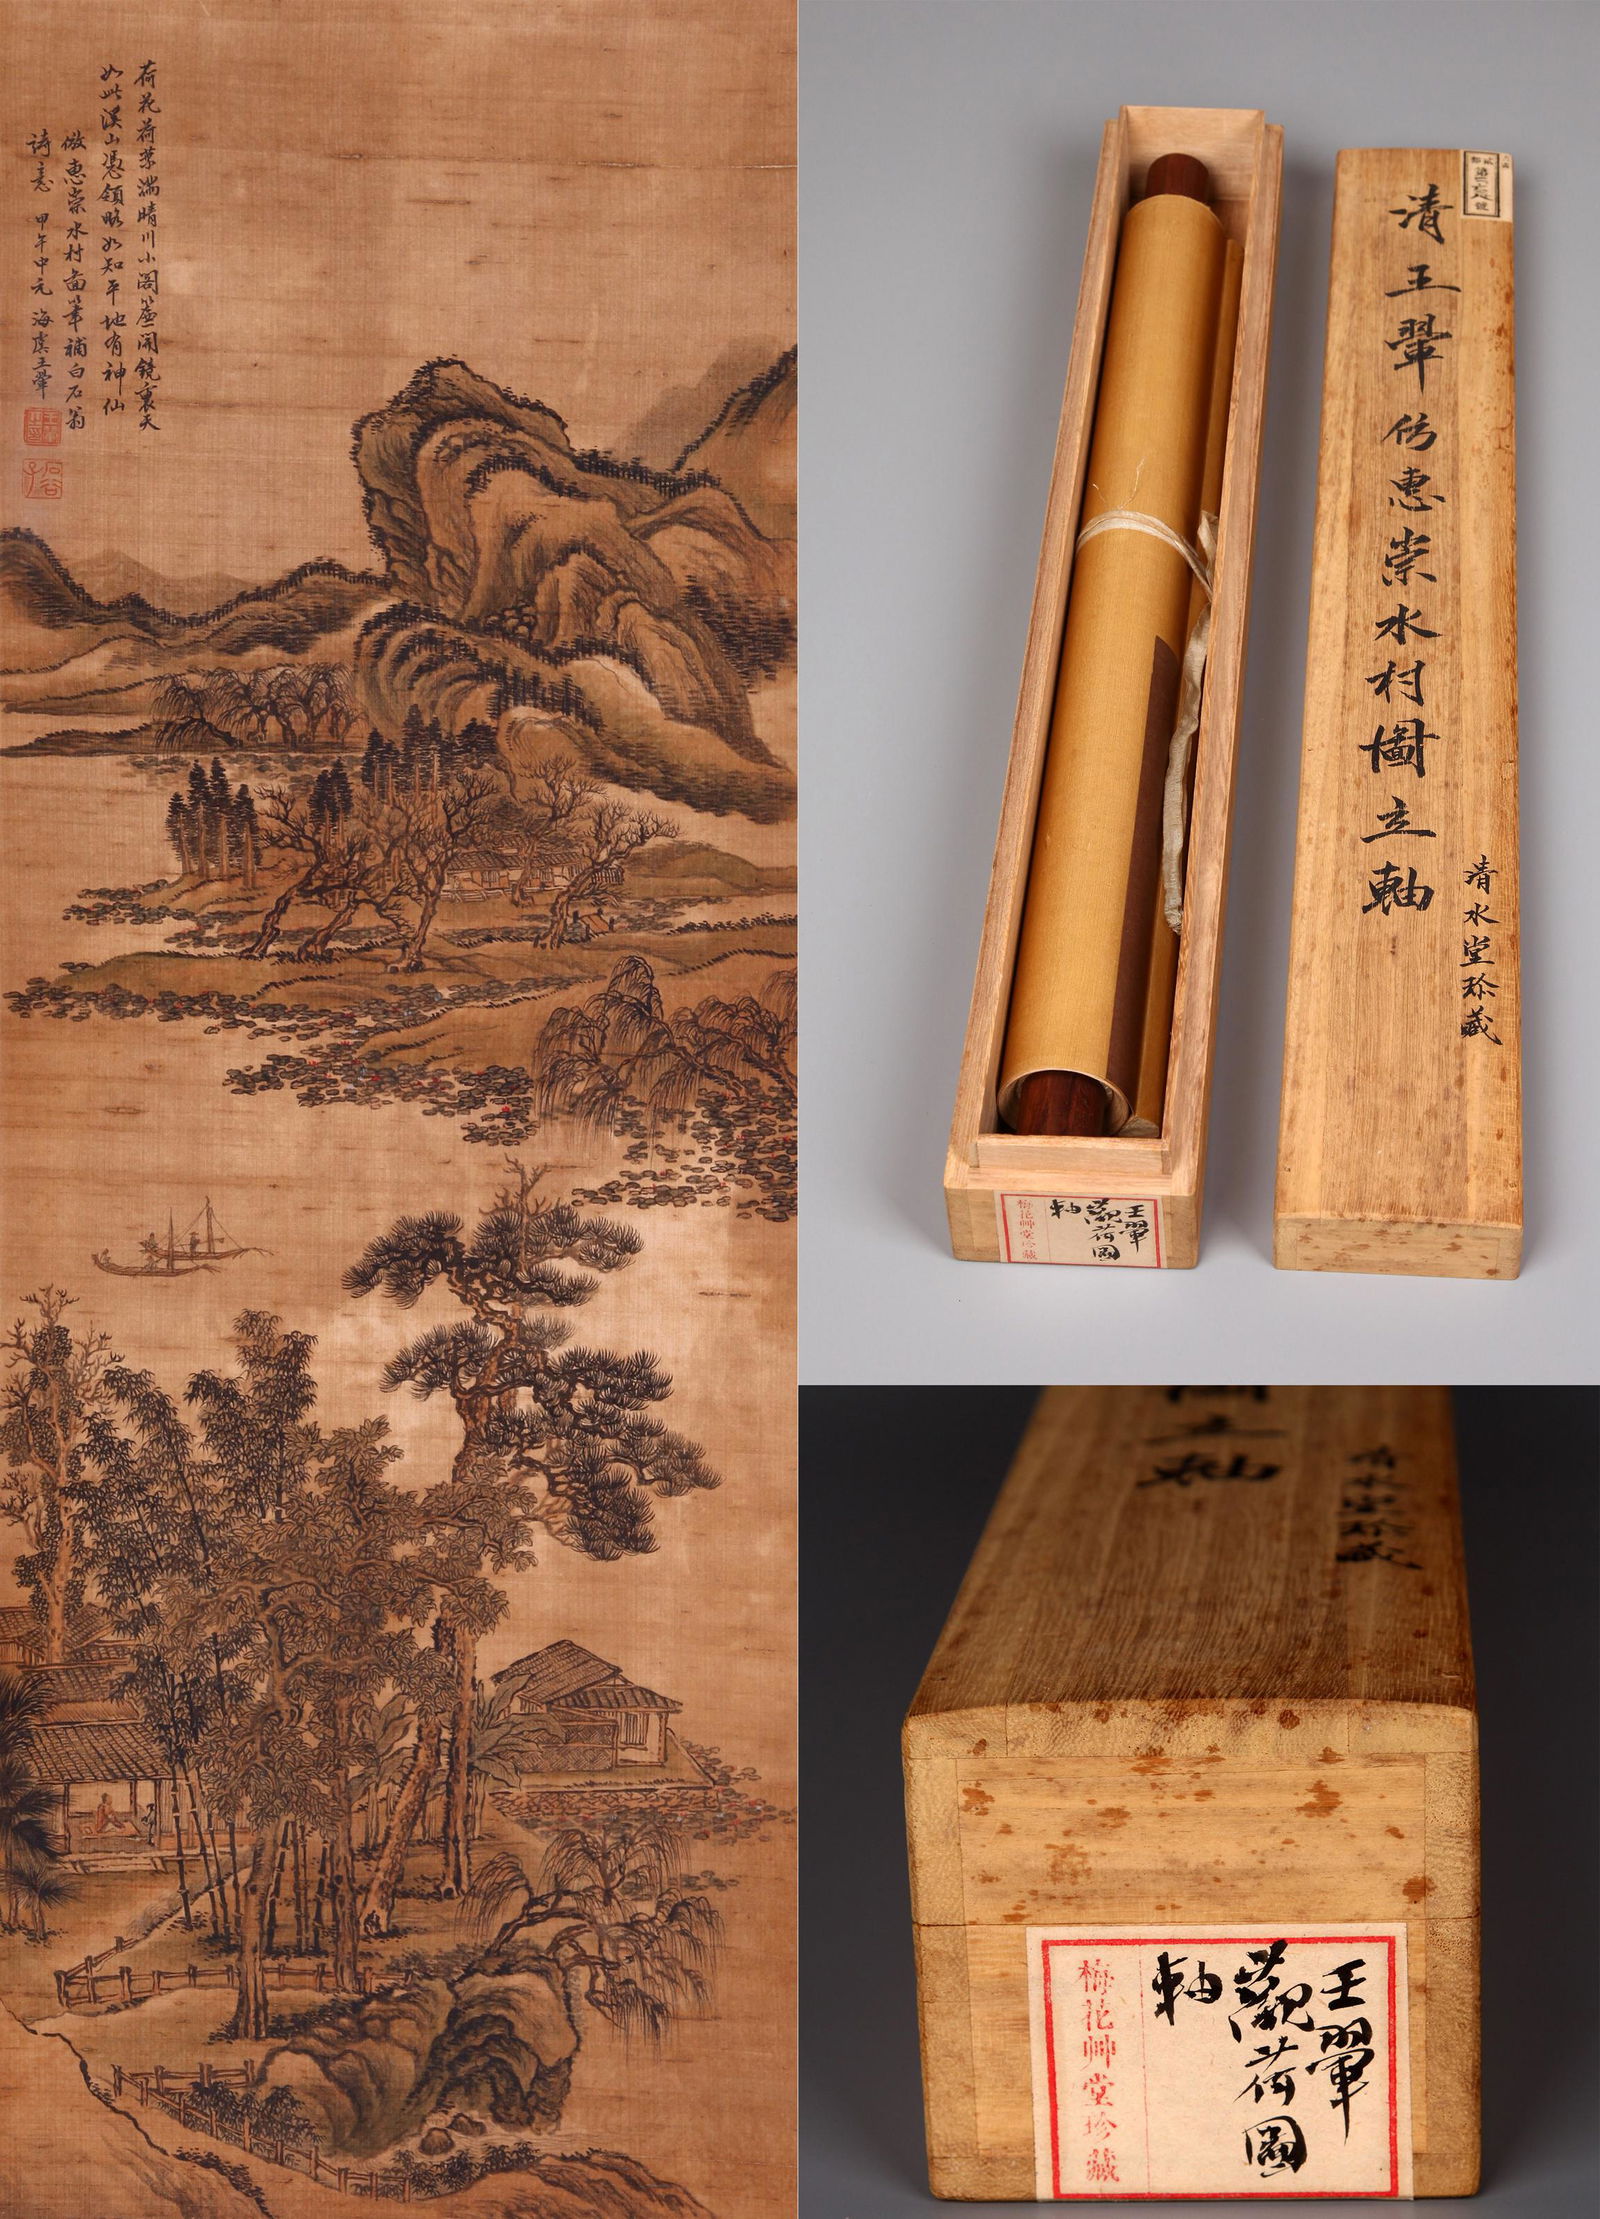 荷花荷葉滿晴川小閣簾開鏡裏天
如此溪山憑領略如知平地有神仙
倣惠崇水村圖筆補白石翁
詩意 甲午中元 海虞王翬
石谷
子
清王翬仿惠崇水村圖立軸
清水堂珍藏
王翬
觀荷圖
軸
梅花艸堂珍藏
圖立軸
清水堂珍藏
王翬
觀荷圖
軸
梅花艸堂珍藏